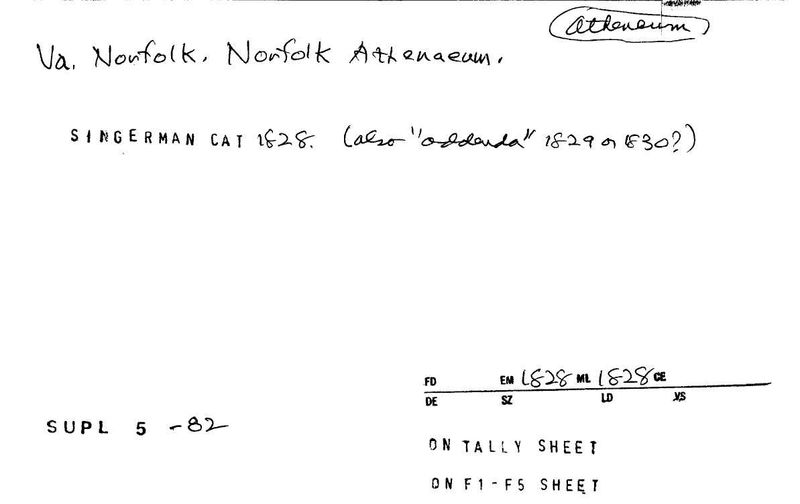 Atheneum
Va. Norfolk. Norfolk Athenaeum.
SINGERMAN CAT 1828. (also "addenda" 1829 or 1830?)
FD EM 1828 ML 1828 CE
DE SZ LD VS
SUPL 5 -82
ON TALLY SHEET
ON F1-F5 SHEET